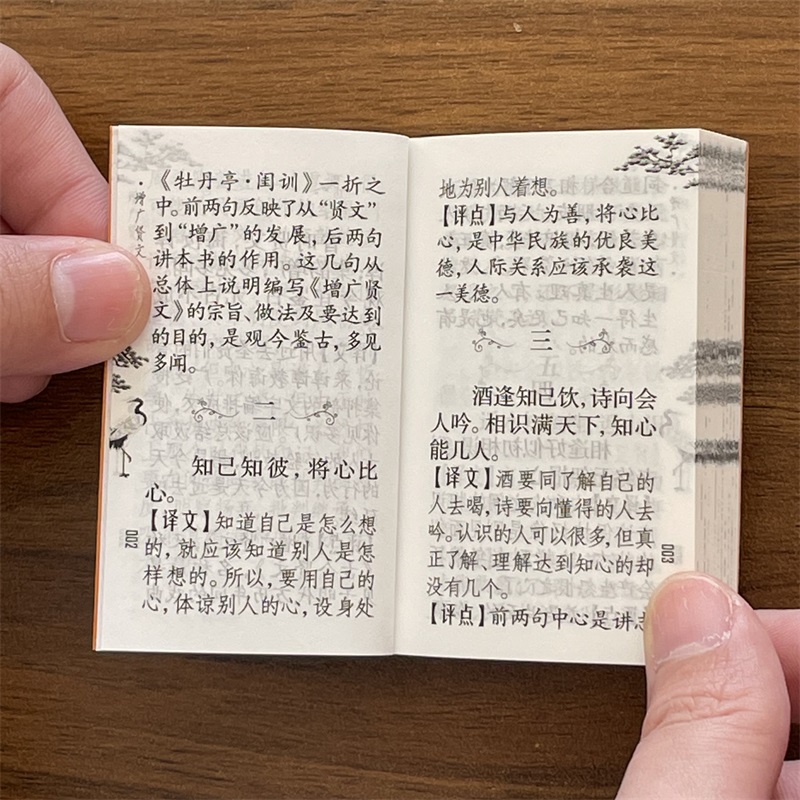 《牡丹亭·闺训》一折之
中。前两句反映了从“贤文”
到“增广”的发展，后两句
讲本书的作用。这几句从
总体上说明编写《增广贤
文》的宗旨、做法及要达到
的目的，是观今鉴古，多见
多闻。
二
知己知彼，将心比
心。
【译文】知道自己是怎么想
的，就应该知道别人是怎
样想的。所以，要用自己的
心，体谅别人的心，设身处
·增广贤文·
002
地为别人着想。
【评点】与人为善，将心比
心，是中华民族的优良美
德，人际关系应该承袭这
一美德。
三
酒逢知己饮，诗向会
人吟。相识满天下，知心
能几人。
【译文】酒要同了解自己的
人去喝，诗要向懂得的人去
吟。认识的人可以很多，但真
正了解、理解达到知心的却
没有几个。
【评点】前两句中心是讲志
003